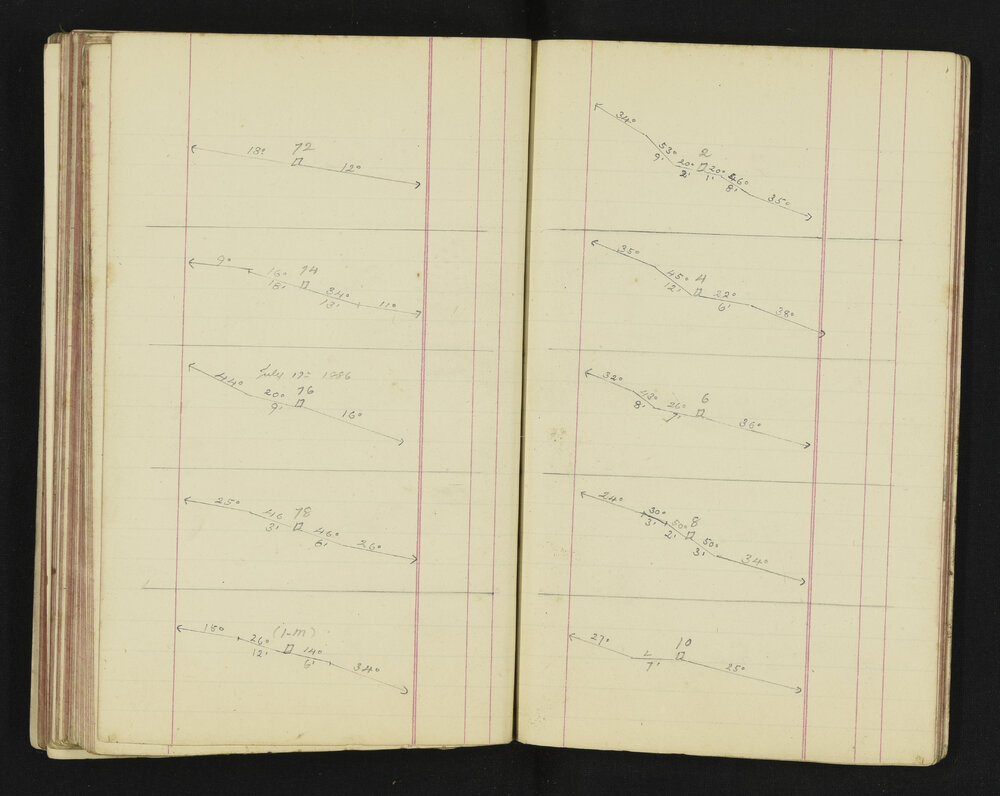 72
18° 12°
74
9° 16° 34° 11°
18' 13'
July 19th 1886
76
44° 20° 16°
9'
78
25° 46 46° 26°
3' 6'
(1-M)
18° 26° 14° 34°
12' 6'
2
34° 53° 20° 20° 46° 35°
9' 2' 1' 8'
4
35° 45° 22° 38°
12' 6'
6
32° 43° 26° 36°
8' 7'
8
24° 30° 50° 50° 34°
3' 2' 3'
10
27° L 25°
7'